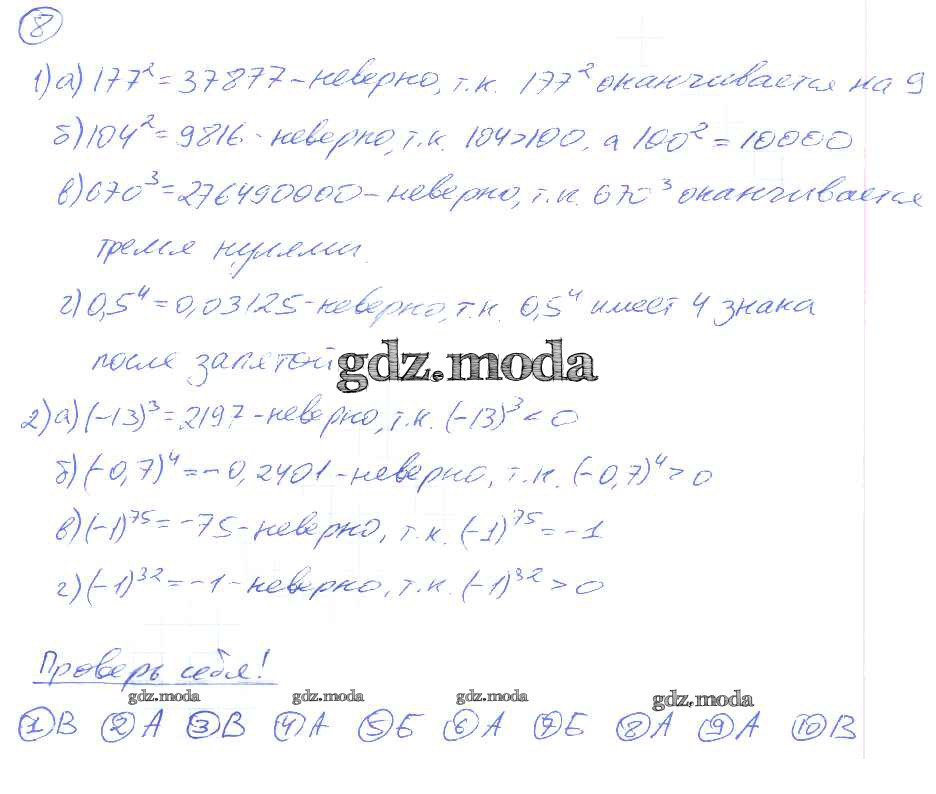 8
1) а) 177² = 37877 - неверно, т.к. 177² оканчивается на 9
б) 104² = 9816 - неверно, т.к. 104>100, а 100² = 10000
в) 670³ = 276490000 - неверно, т.к. 670³ оканчивается
тремя нулями.
г) 0,5⁴ = 0,03125 - неверно, т.к. 0,5⁴ имеет 4 знака
после запятой
gdz.moda
2) а) (-13)³ = 2197 - неверно, т.к. (-13)³ < 0
б) (-0,7)⁴ = -0,2401 - неверно, т.к. (-0,7)⁴ > 0
в) (-1)⁷⁵ = -75 - неверно, т.к. (-1)⁷⁵ = -1
г) (-1)³² = -1 - неверно, т.к. (-1)³² > 0
Проверь себя!
gdz.moda gdz.moda gdz.moda gdz.moda
1 В 2 А 3 В 4 А 5 Б 6 А 7 Б 8 А 9 А 10 В